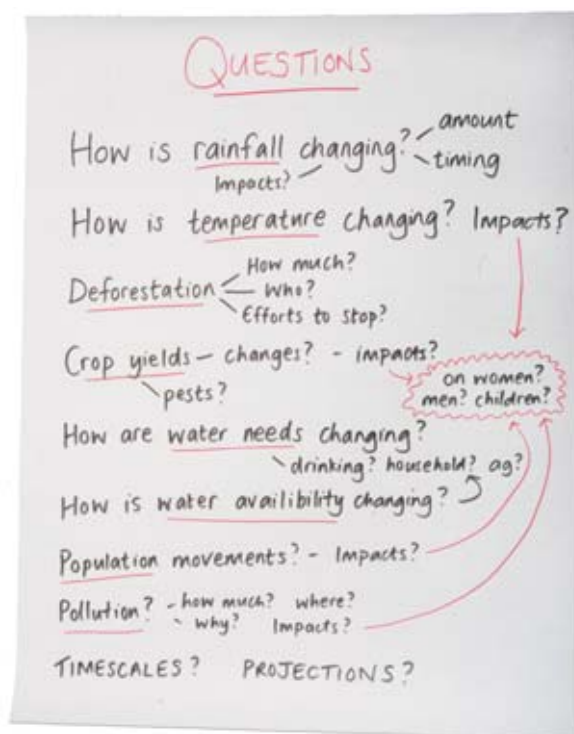 QUESTIONS
How is rainfall changing? amount
timing
Impacts?
How is temperature changing? Impacts?
Deforestation
How much?
Who?
Efforts to stop?
Crop yields - changes? - impacts?
pests?
on women?
men? children?
How are water needs changing?
drinking? household? ag?
How is water availibility changing?
Population movements? - Impacts?
Pollution? - how much? where?
- why? Impacts?
TIMESCALES? PROJECTIONS?